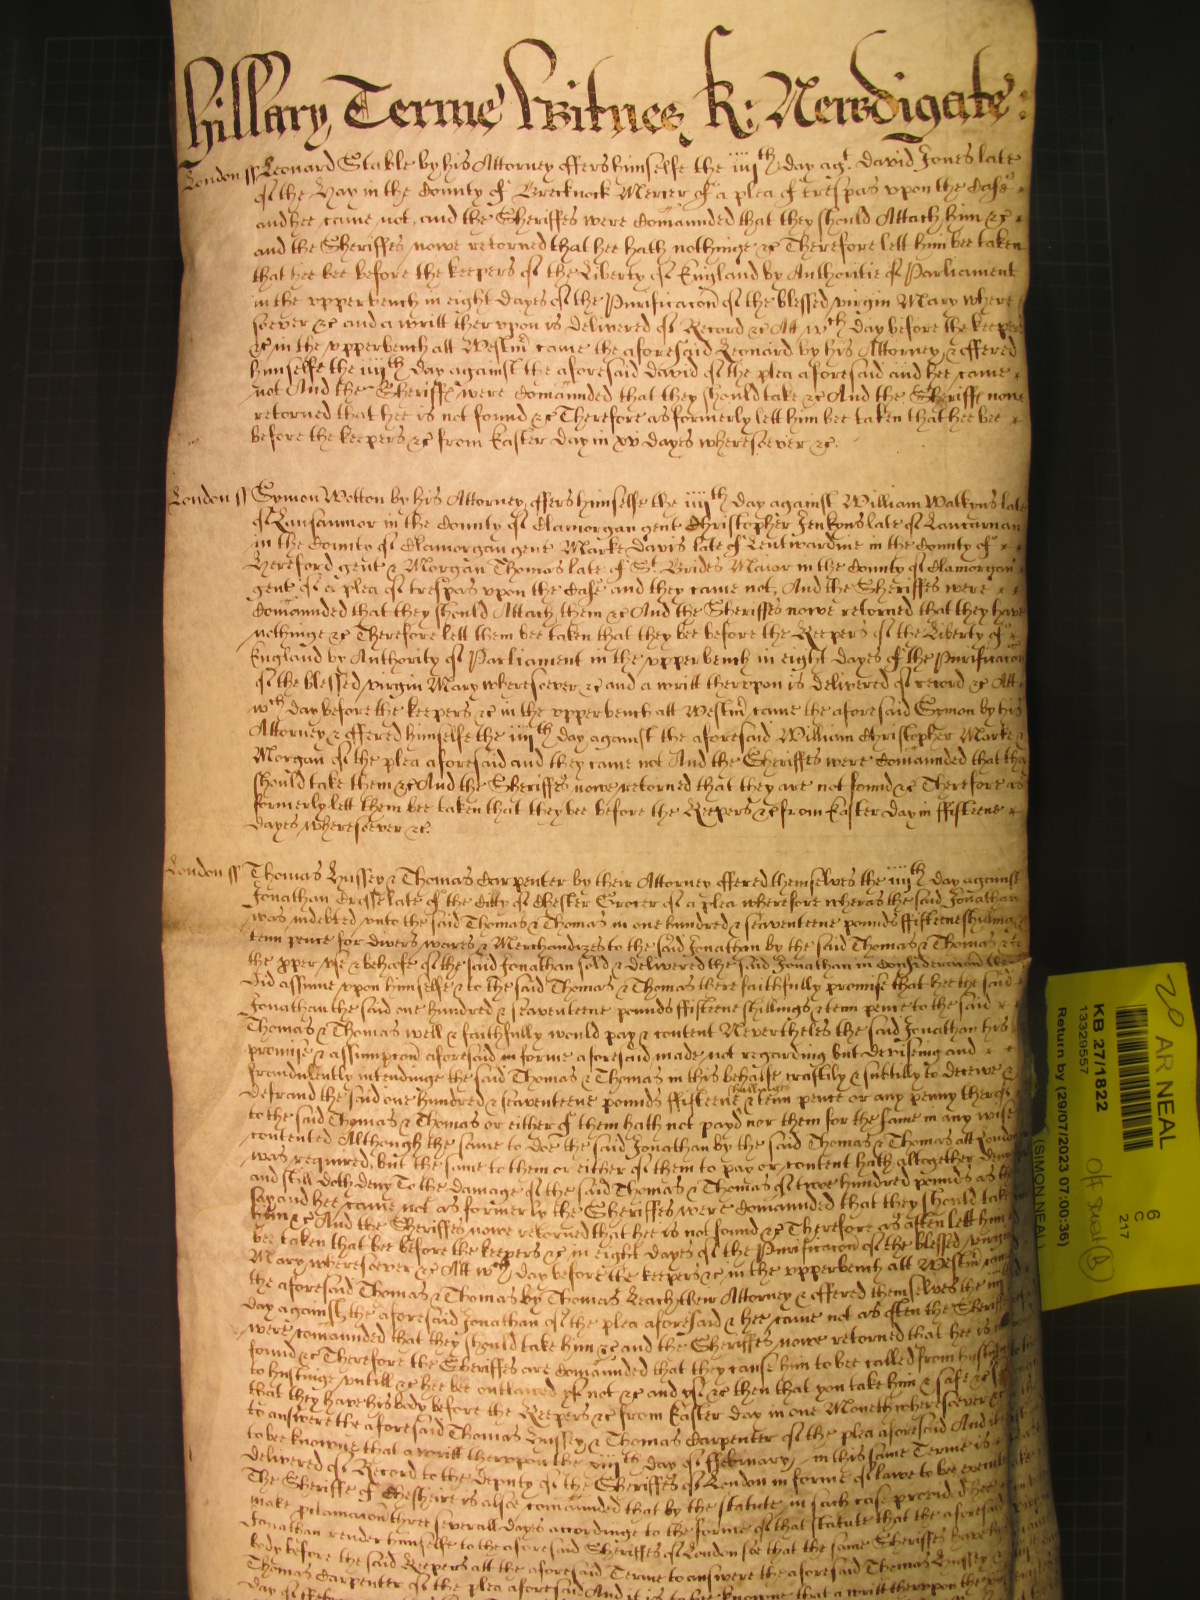 Hillary Terme Witnes R: Newdigate:
London ss Leonard Stakle by his Attorney offers himselfe the iiiith day agt. David Jones late
of the Hay in the County of Brecknock Mercer of a plea of trespas vpon the Case
and hee came not, and the Sheriffes were Comaunded that they should Attach him &c
and the Sheriffes nowe retorned that hee hath nothinge &c Therefore lett him bee taken
that hee bee before the keepers of the Liberty of England by Authoritie of Parliament
in the vpper bench in eight dayes of the Purificacon of the blessed virgin Mary where
soever &c and a writt thervpon is delivered of Record &c Att wch day before the keepers
&c in the vpperbench att Westm came the aforesaid Leonard by his Attorney & offered
himselfe the iiiith day against the aforesaid David of the plea aforesaid and hee came
not And the Sheriffe were Comaunded that they should take &c And the Sheriffe nowe
retorned that hee is not found &c Therefore as formerly lett him bee taken that hee bee
before the keepers &c from Easter day in xv dayes wheresoever &c.
London ss Symon Wotton by his Attorney offers himselfe the iiiith day against William Watkyns late
of Lansannor in the County of Glamorgan gent Christopher Jenkyns late of Lancarnan
in the County of Glamorgan gent Marke Davis late of Leintwardine in the County of
Hereford gent & Morgan Thomas late of St. Brides Maior in the County of Glamorgan
gent of a plea of trespas vpon the Case and they came not, And the Sheriffes were
Comaunded that they should Attach them &c And the Sheriffes nowe retorned that they have
nothinge &c Therefore lett them bee taken that they bee before the Keepers of the Liberty of
England by Authority of Parliament in the vpperbench in eight dayes of the Purificacon
of the blessed virgin Mary wheresoever &c and a writt thervpon is delivered of record &c Att
wch day before the keepers &c in the vpperbench att Westm came the aforesaid Symon by his
Attorney & offered himselfe the iiiith day against the aforesaid William Christopher Marke &
Morgan of the plea aforesaid and they came not And the Sheriffes were Comaunded that they
should take them &c And the Sheriffes nowe retorned that they are not found &c Therefore as
formerly lett them bee taken that they bee before the Keepers &c from Easter day in fifteene
dayes wheresoever &c.
London ss Thomas Hussey & Thomas Carpenter by their Attorney offered themselves the iiiith day against
Jonathan late of the Citty of Chester Grocer of a plea wherefore wheras the said Jonathan
was indebted vnto the said Thomas & Thomas in one hundred & seaventeene pounds fifteene shillings
tenn pence for divers wares & Merchandizes to the said Jonathan by the said Thomas & Thomas
the pper vse & behalfe of the said Jonathan sold & delivered the said Jonathan in Consideracon
did assume vpon himselfe & to the said Thomas & Thomas there faithfully promise that hee the said
Jonathan the said one hundred & seaventeene pounds fifteene shillings & tenn pence to the said
Thomas & Thomas well & faithfully would pay & content Nevertheles the said Jonathan his
promise & assumpcon aforesaid in forme aforesaid made not regarding but devising and
fraudulently intendinge the said Thomas & Thomas in this behalfe craftily & subtilly to deceive &
defraud the said one hundred & seaventeene pounds fifteene shillings & tenn pence or any penny therof
to the said Thomas & Thomas or either of them hath not payd nor them for the same in any wise
contented Although the same to doe the said Jonathan by the said Thomas & Thomas att London
was required, but the same to them or either of them to pay or content hath altogether
and still doth deny To the damage of the said Thomas & Thomas of twoe hundred pounds as
say and hee came not as formerly the Sheriffes were Comaunded that they should take
him &c And the Sheriffes nowe retorned that hee is not found &c Therefore as often lett him
bee taken that bee before the keepers &c in eight dayes of the Purificacon of the blessed virgin
Mary wheresoever &c Att wch day before the keepers &c in the vpperbench att Westm
the aforesaid Thomas & Thomas by Thomas Leach their Attorney & offered themselves the
day against the aforesaid Jonathan of the plea aforesaid & hee came not as often the Sheriffes
were comaunded that they should take him &c and the Sheriffes nowe retorned that hee is
found &c Therefore the Sheriffes are Comaunded that they cause him to bee called from
to hustinge vntill &c hee bee outlawed yf not &c and yf &c then that you take him & safe &c
that they have his body before the Keepers &c from Easter day in one Moneth wheresoever
to answere the aforesaid Thomas Hussey & Thomas Carpenter of the plea aforesaid And it
to bee knowne that a writt thervpon the day of february in this same Terme is
delivered of Record to the deputy of the Sheriffes of London in forme of lawe to bee
The Sheriffe of Chesheire is alsoe comaunded that by the statute in such case provided hee
make pclamacon three severall dayes accordinge to the forme of that statute that the aforesaid
Jonathan render himselfe to the aforesaid Sheriffes of London soe that the same Sheriffes have his
body before the said Keepers att the aforesaid Terme to answere the aforesaid Thomas Hussey &
Thomas Carpenter of the plea aforesaid And it is to bee knowne that a writt thervpon the
day of
20 AR NEAL
KB 27/1822
13329557
Return by (29/07/2023 07:00:36)
(SIMON NEAL)
6
C
217